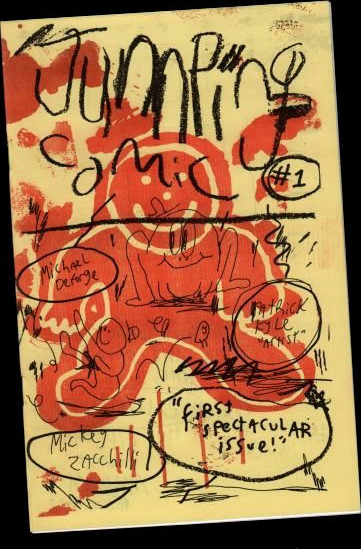 Jumping
Comic
#1
Michael
Deforge
Patrick
Kyle
"ARTIST"
"first
spectacular
issue!"
Mickey
Zacchilli